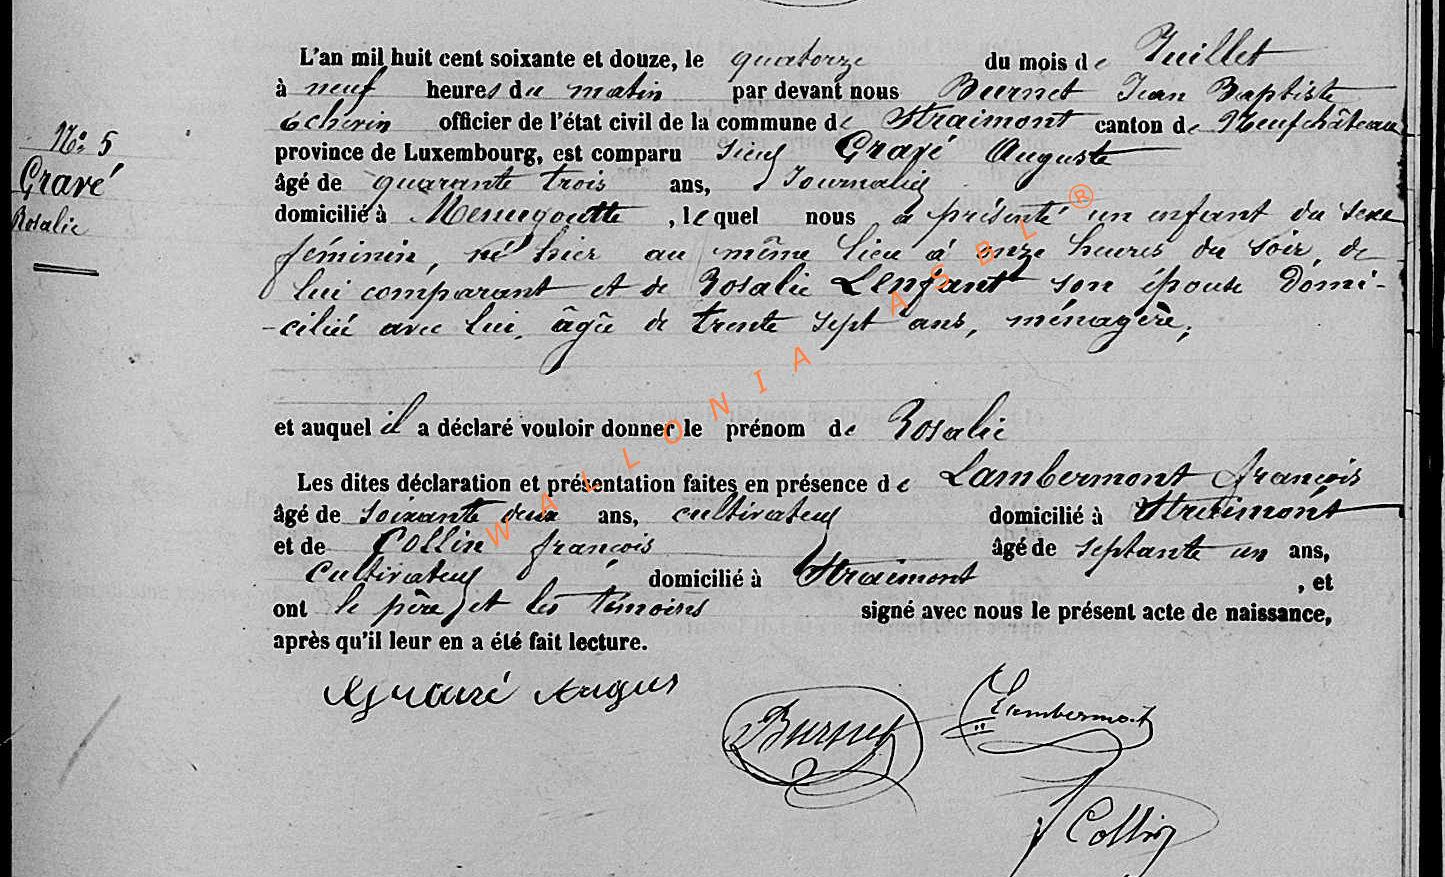 L'an mil huit cent soixante et douze, le quatorze du mois de Juillet
à neuf heures du matin par devant nous Burnet Jean Baptiste
échevin officier de l'état civil de la commune de Straimont canton de Neufchâteau
province de Luxembourg, est comparu Sieur Gravé Auguste
âgé de quarante trois ans, Journalier
domicilié à Menugoutte, lequel nous a présenté un enfant du sexe
féminin, né hier au même lieu à onze heures du soir, de
lui comparant et de Rosalie Lenfant son épouse domi-
-ciliée avec lui, âgée de trente sept ans, ménagère,
et auquel il a déclaré vouloir donner le prénom de Rosalie
Les dites déclaration et présentation faites en présence de Lambermont françois
âgé de soixante deux ans, cultivateur domicilié à Straimont
et de Collin françois âgé de septante un ans,
Cultivateur, domicilié à Straimont, et
ont le père et les témoins signé avec nous le présent acte de naissance,
après qu'il leur en a été fait lecture.
N° 5
Gravé
Rosalie
Gravé Augus
Burnet
Lambermont
Collin
WALLONIA ASBL ®